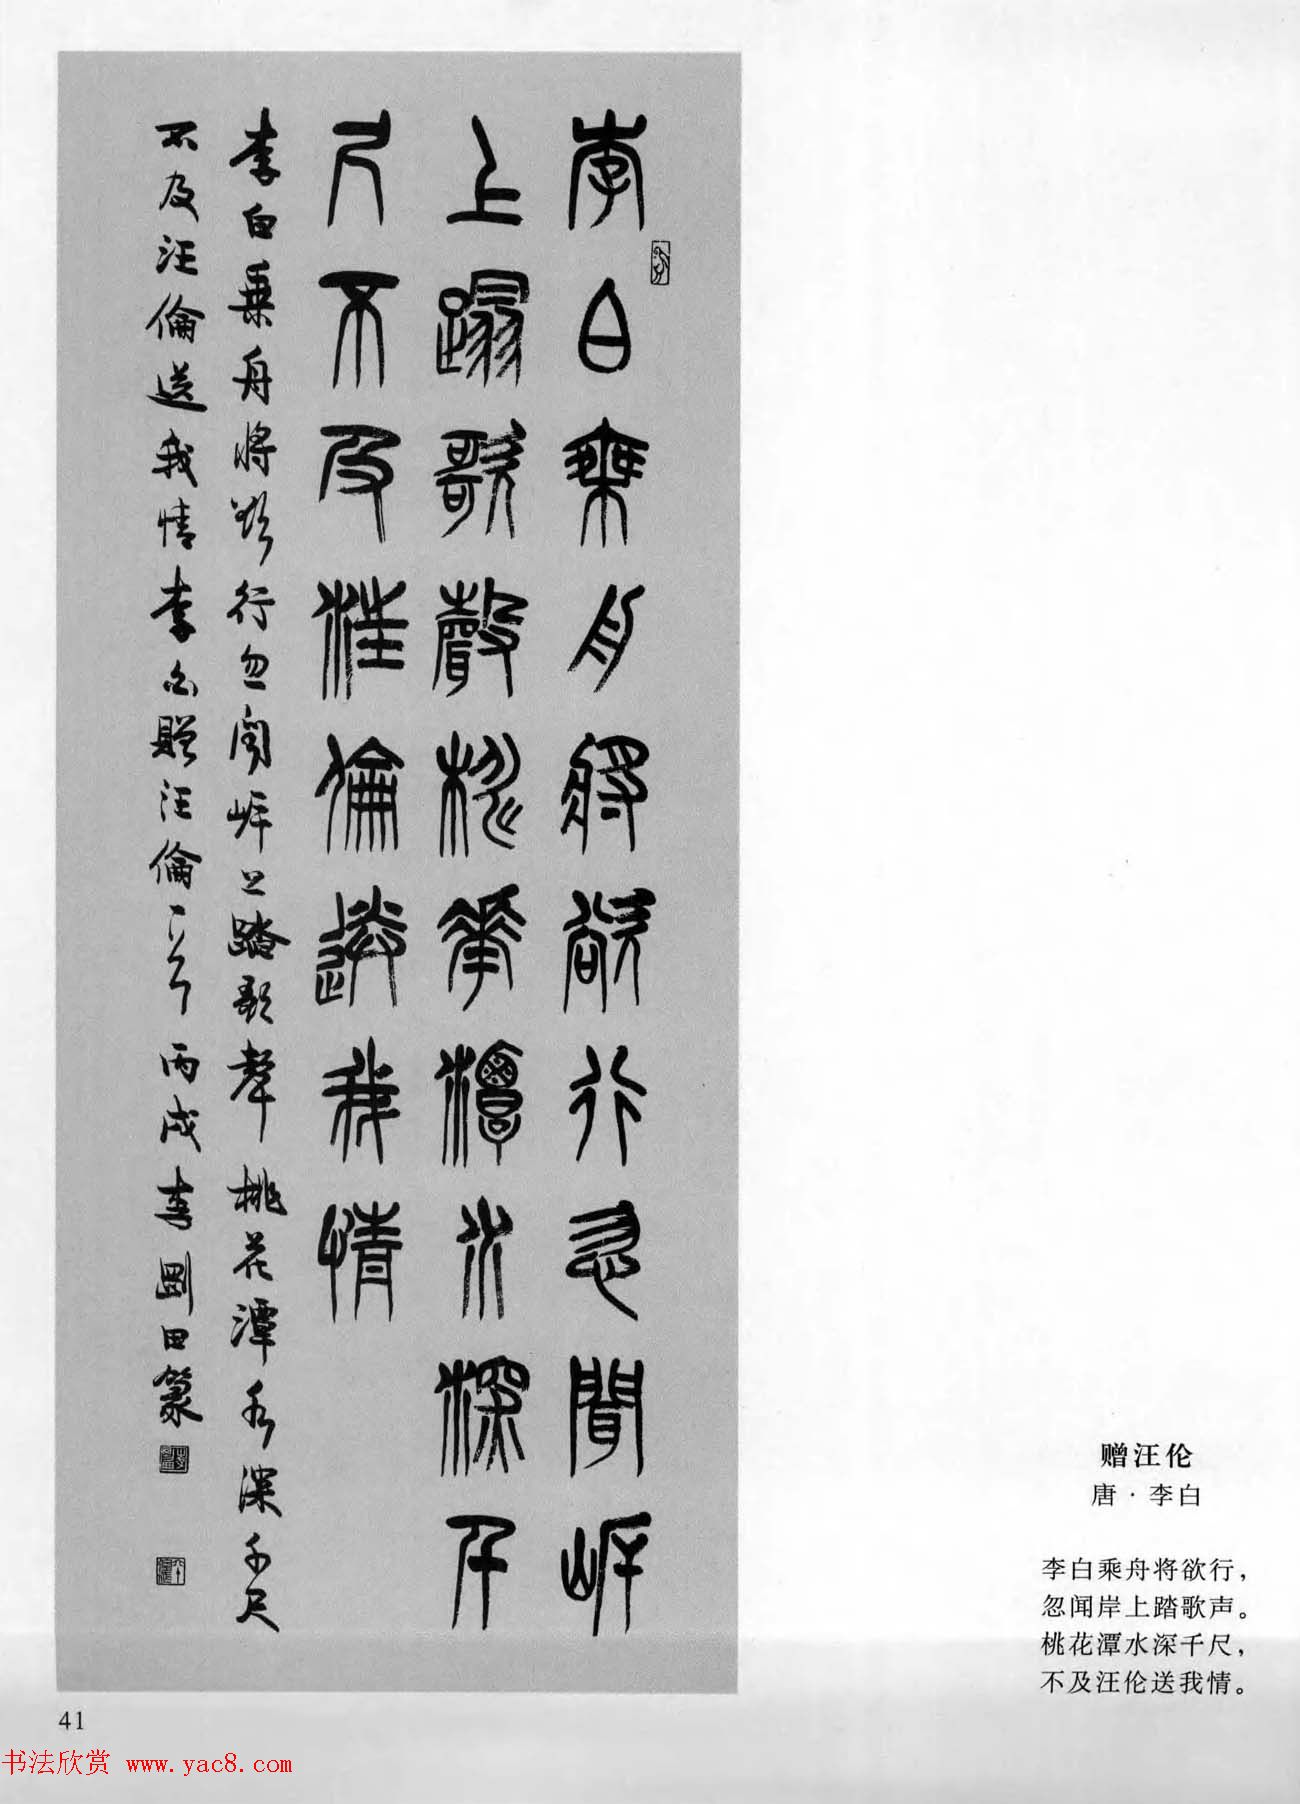 李白乘舟將欲行忽聞岸
上蹋歌聲桃華潭水深千
尺不及汪倫送我情
李白乘舟將欲行忽聞岸上踏歌聲桃花潭水深千尺
不及汪倫送我情李白贈汪倫一首丙戌李剛田篆
赠汪伦
唐·李白
李白乘舟将欲行，
忽闻岸上踏歌声。
桃花潭水深千尺，
不及汪伦送我情。
41
书法欣赏 www.yac8.com